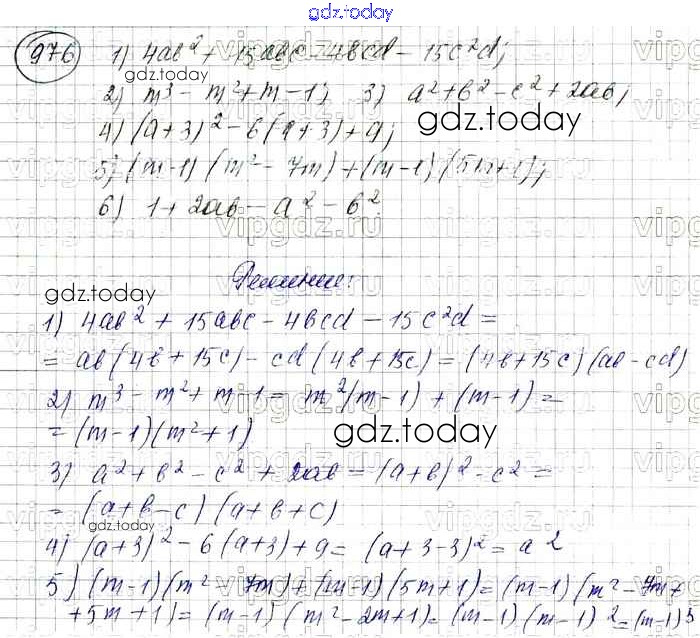 gdz.today
976 1) 4ab² + 15abc - 4bcd - 15c²d;
gdz.today
2) m³ - m² + m - 1; 3) a² + b² - c² + 2ab;
4) (a+3)² - 6(a+3) + 9;
gdz.today
5) (m-1)(m² - 7m) + (m-1)(5m+1);
6) 1 + 2ab - a² - b².
vipgdz.ru
Решение:
gdz.today
1) 4ab² + 15abc - 4bcd - 15c²d =
= ab(4b + 15c) - cd(4b + 15c) = (4b + 15c)(ab - cd)
2) m³ - m² + m - 1 = m²(m-1) + (m-1) =
= (m-1)(m²+1)
gdz.today
3) a² + b² - c² + 2ab = (a+b)² - c² =
= (a+b-c)(a+b+c)
gdz.today
4) (a+3)² - 6(a+3) + 9 = (a+3-3)² = a²
5) (m-1)(m² - 7m) + (m-1)(5m+1) = (m-1)(m² - 7m +
+ 5m + 1) = (m-1)(m² - 2m + 1) = (m-1)(m-1)² = (m-1)³